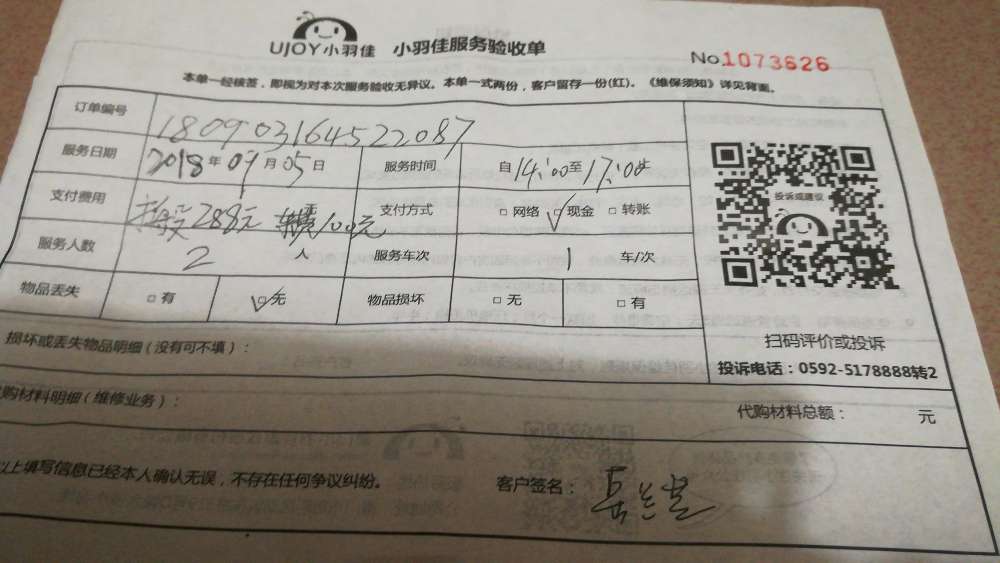 UJOY小羽佳 小羽佳服务验收单
No.1073626
本单一经核签,即视为对本次服务验收无异议。本单一式两份,客户留存一份(红)。《维保须知》详见背面。
订单编号 180903164522087
服务日期 2018年09月05日 服务时间 自14:00至17:00止
支付费用 288元 100元 支付方式 □网络 ☑现金 □转账
服务人数 2人 服务车次 1 车/次
物品丢失 □有 ☑无 物品损坏 □无 □有
投诉或建议
扫码评价或投诉
投诉电话:0592-5178888转2
损坏或丢失物品明细(没有可不填):
购材料明细(维修业务): 代购材料总额: 元
以上填写信息已经本人确认无误,不存在任何争议纠纷。 客户签名: